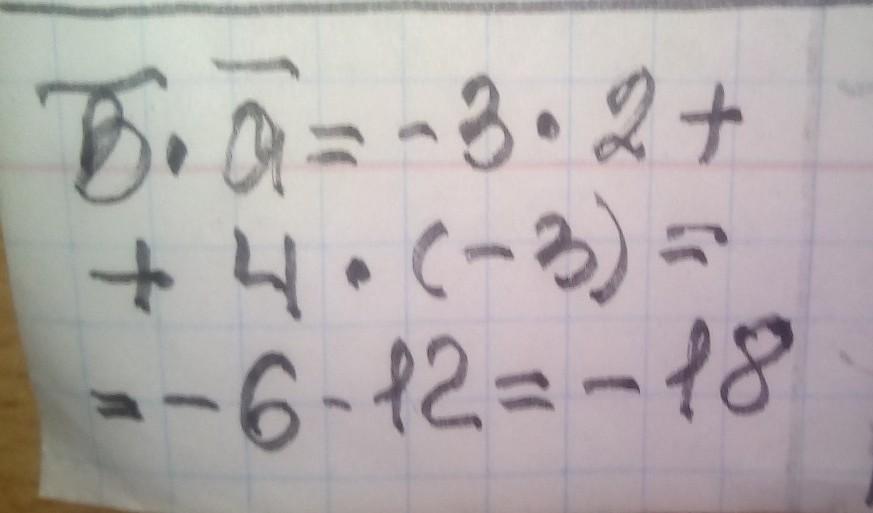 в̅ · а̅ = -3 · 2 +
+ 4 · (-3) =
= - 6 - 12 = - 18